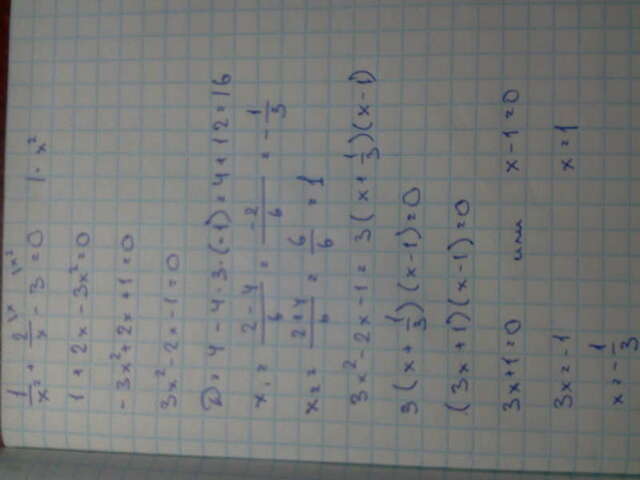 1/x² + 2/x - 3 = 0 | · x²
1 + 2x - 3x² = 0
-3x² + 2x + 1 = 0
3x² - 2x - 1 = 0
D = 4 - 4 · 3 · (-1) = 4 + 12 = 16
x₁ = (2 - 4)/6 = -2/6 = -1/3
x₂ = (2 + 4)/6 = 6/6 = 1
3x² - 2x - 1 = 3(x + 1/3)(x - 1)
3(x + 1/3)(x - 1) = 0
(3x + 1)(x - 1) = 0
3x + 1 = 0 или x - 1 = 0
3x = -1 x = 1
x = -1/3